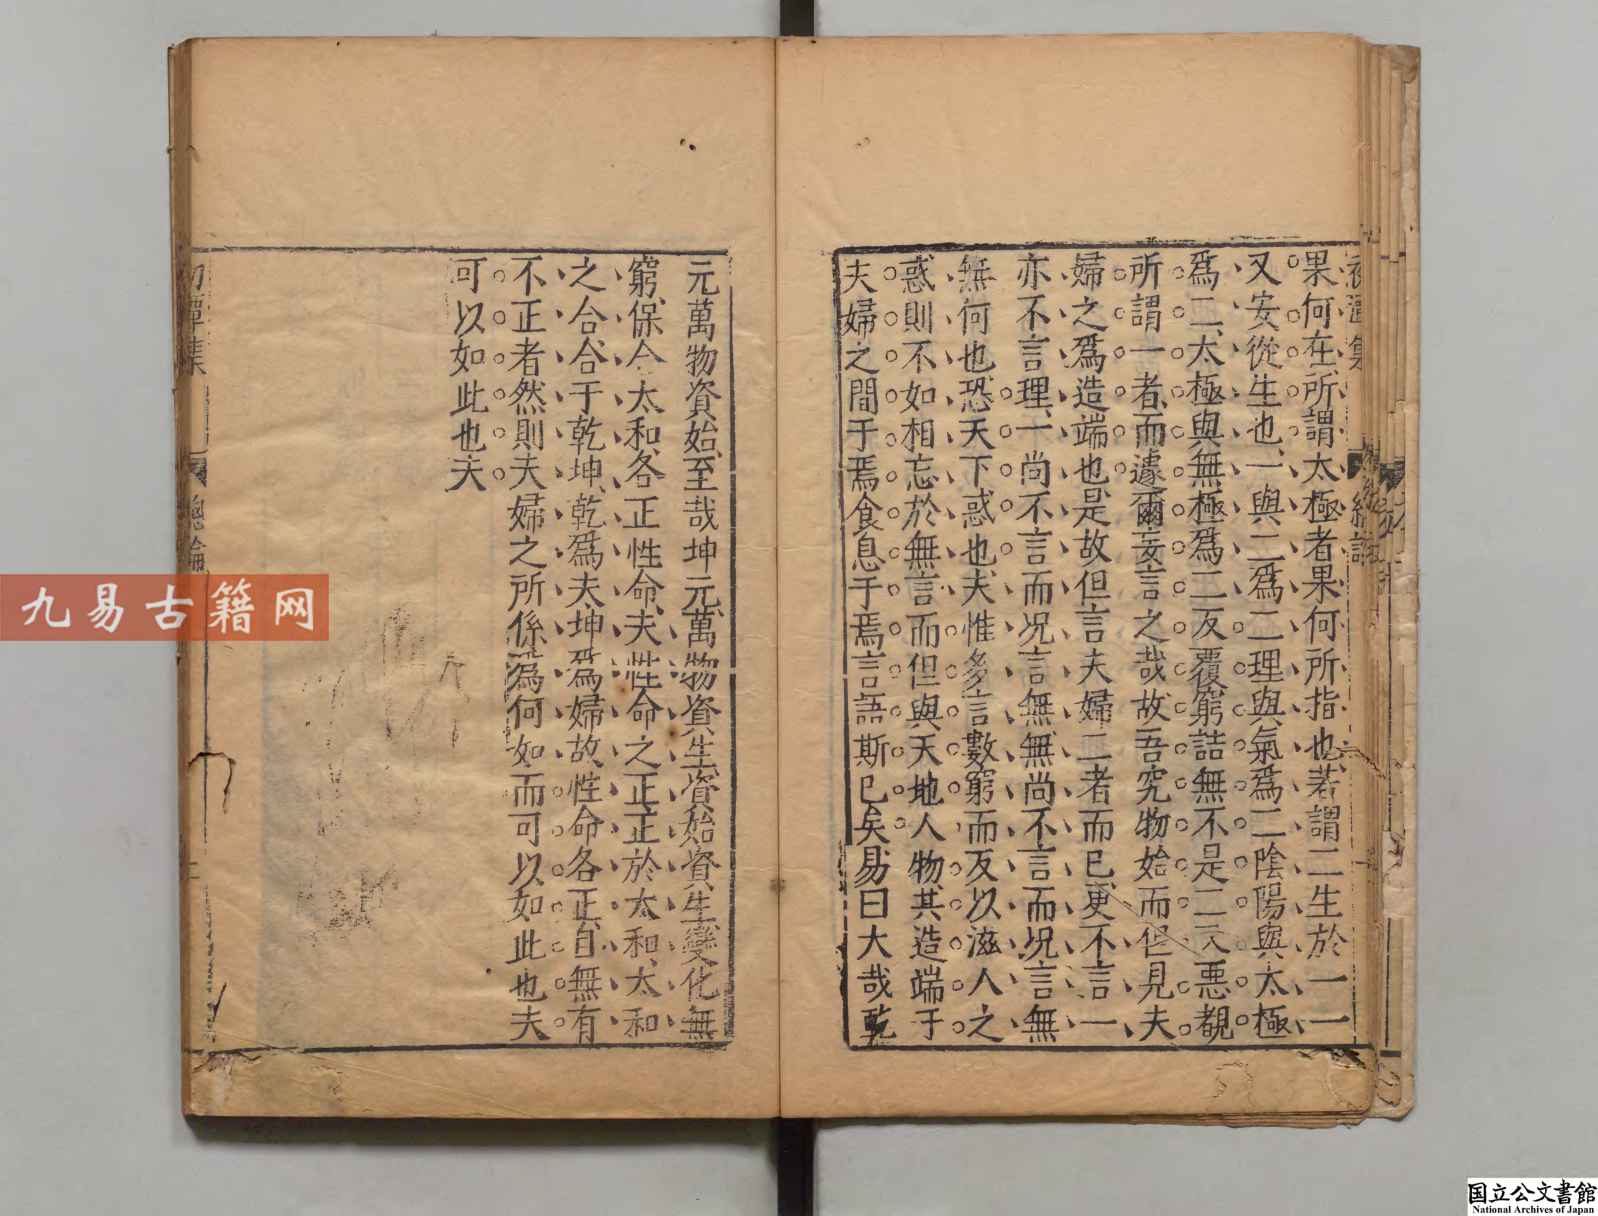 果何在所謂太極者果何所指也若謂二生於一一
又安從生也一與二爲二理與氣爲二陰陽與太極
爲二太極與無極爲二反覆窮詰無不是二又惡覩
所謂一者而遽爾妄言之哉故吾究物始而但見夫
婦之爲造端也是故但言夫婦二者而已更不言一
亦不言理一尚不言而况言無無尚不言而况言無
無何也恐天下惑也夫惟多言數窮而反以滋人之
惑則不如相忘於無言而但與天地人物其造端于
夫婦之間于焉食息于焉言語斯已矣易曰大哉乾
元萬物資始至哉坤元萬物資生資始資生變化無
窮保合太和各正性命夫性命之正正於太和太和
之合合于乾坤乾爲夫坤爲婦故性命各正自無有
不正者然則夫婦之所係爲何如而可以如此也夫
可以如此也夫
初潭集
總論
九易古籍网
国立公文書館
National Archives of Japan